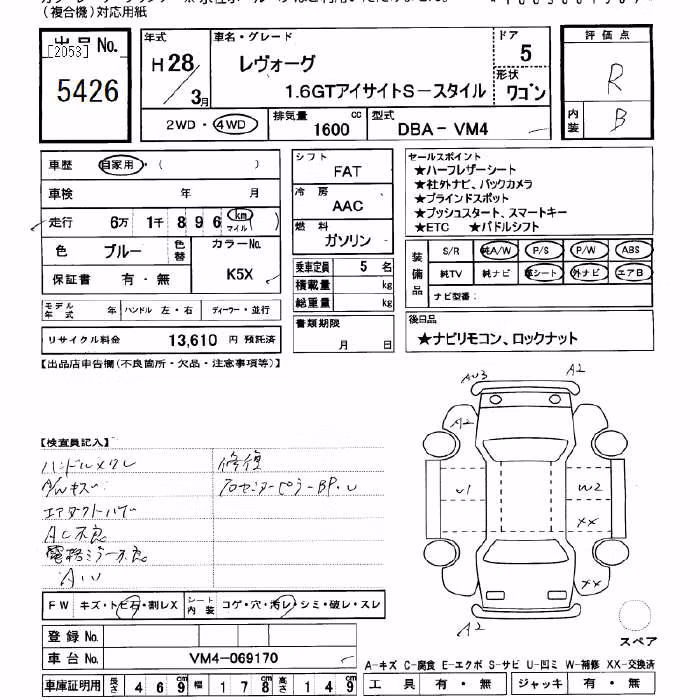 (複合機)対応用紙
出品No.
[2053]
5426
年式
H28/3月
車名・グレード
レヴォーグ
1.6GTアイサイトS-スタイル
ドア
5
形状
ワゴン
2WD・4WD
排気量 1600 cc
型式 DBA-VM4
評価点
R
内装 B
車歴 自家用・( )
車検 年 月
走行 6万 1千 8 9 6 km マイル
色 ブルー 色替
カラーNo. K5X
保証書 有・無
モデル年式 年 ハンドル 左・右 ディーラー・並行
リサイクル料金 13,610 円 預託済
シフト
FAT
冷房
AAC
燃料
ガソリン
乗車定員 5 名
積載量 kg
総重量 kg
書類期限
月 日
セールスポイント
★ハーフレザーシート
★社外ナビ、バックカメラ
★ブラインドスポット
★プッシュスタート、スマートキー
★ETC ★パドルシフト
装備品
S/R 純A/W P/S P/W ABS
純TV 純ナビ 革シート 外ナビ エアB
ナビ型番:
後日品
★ナビリモコン、ロックナット
【出品店申告欄(不良箇所・欠品・注意事項等)】
【検査員記入】
ハンドルスレ 修復
A/Wキズ
AC不良
電格ミラー不良
AU3 A2
A2
U1 W2
XX
XX
A2
FW キズ・トビ石・割レX
シート内装 コゲ・穴・汚レ・シミ・破レ・スレ
登録No.
車台No. VM4-069170
車庫証明用 長さ 4 6 9 cm 幅 1 7 8 cm 高さ 1 4 9 cm
スペア
A-キズ C-腐食 E-エクボ S-サビ U-凹ミ W-補修 XX-交換済
工具 有・無 ジャッキ 有・無